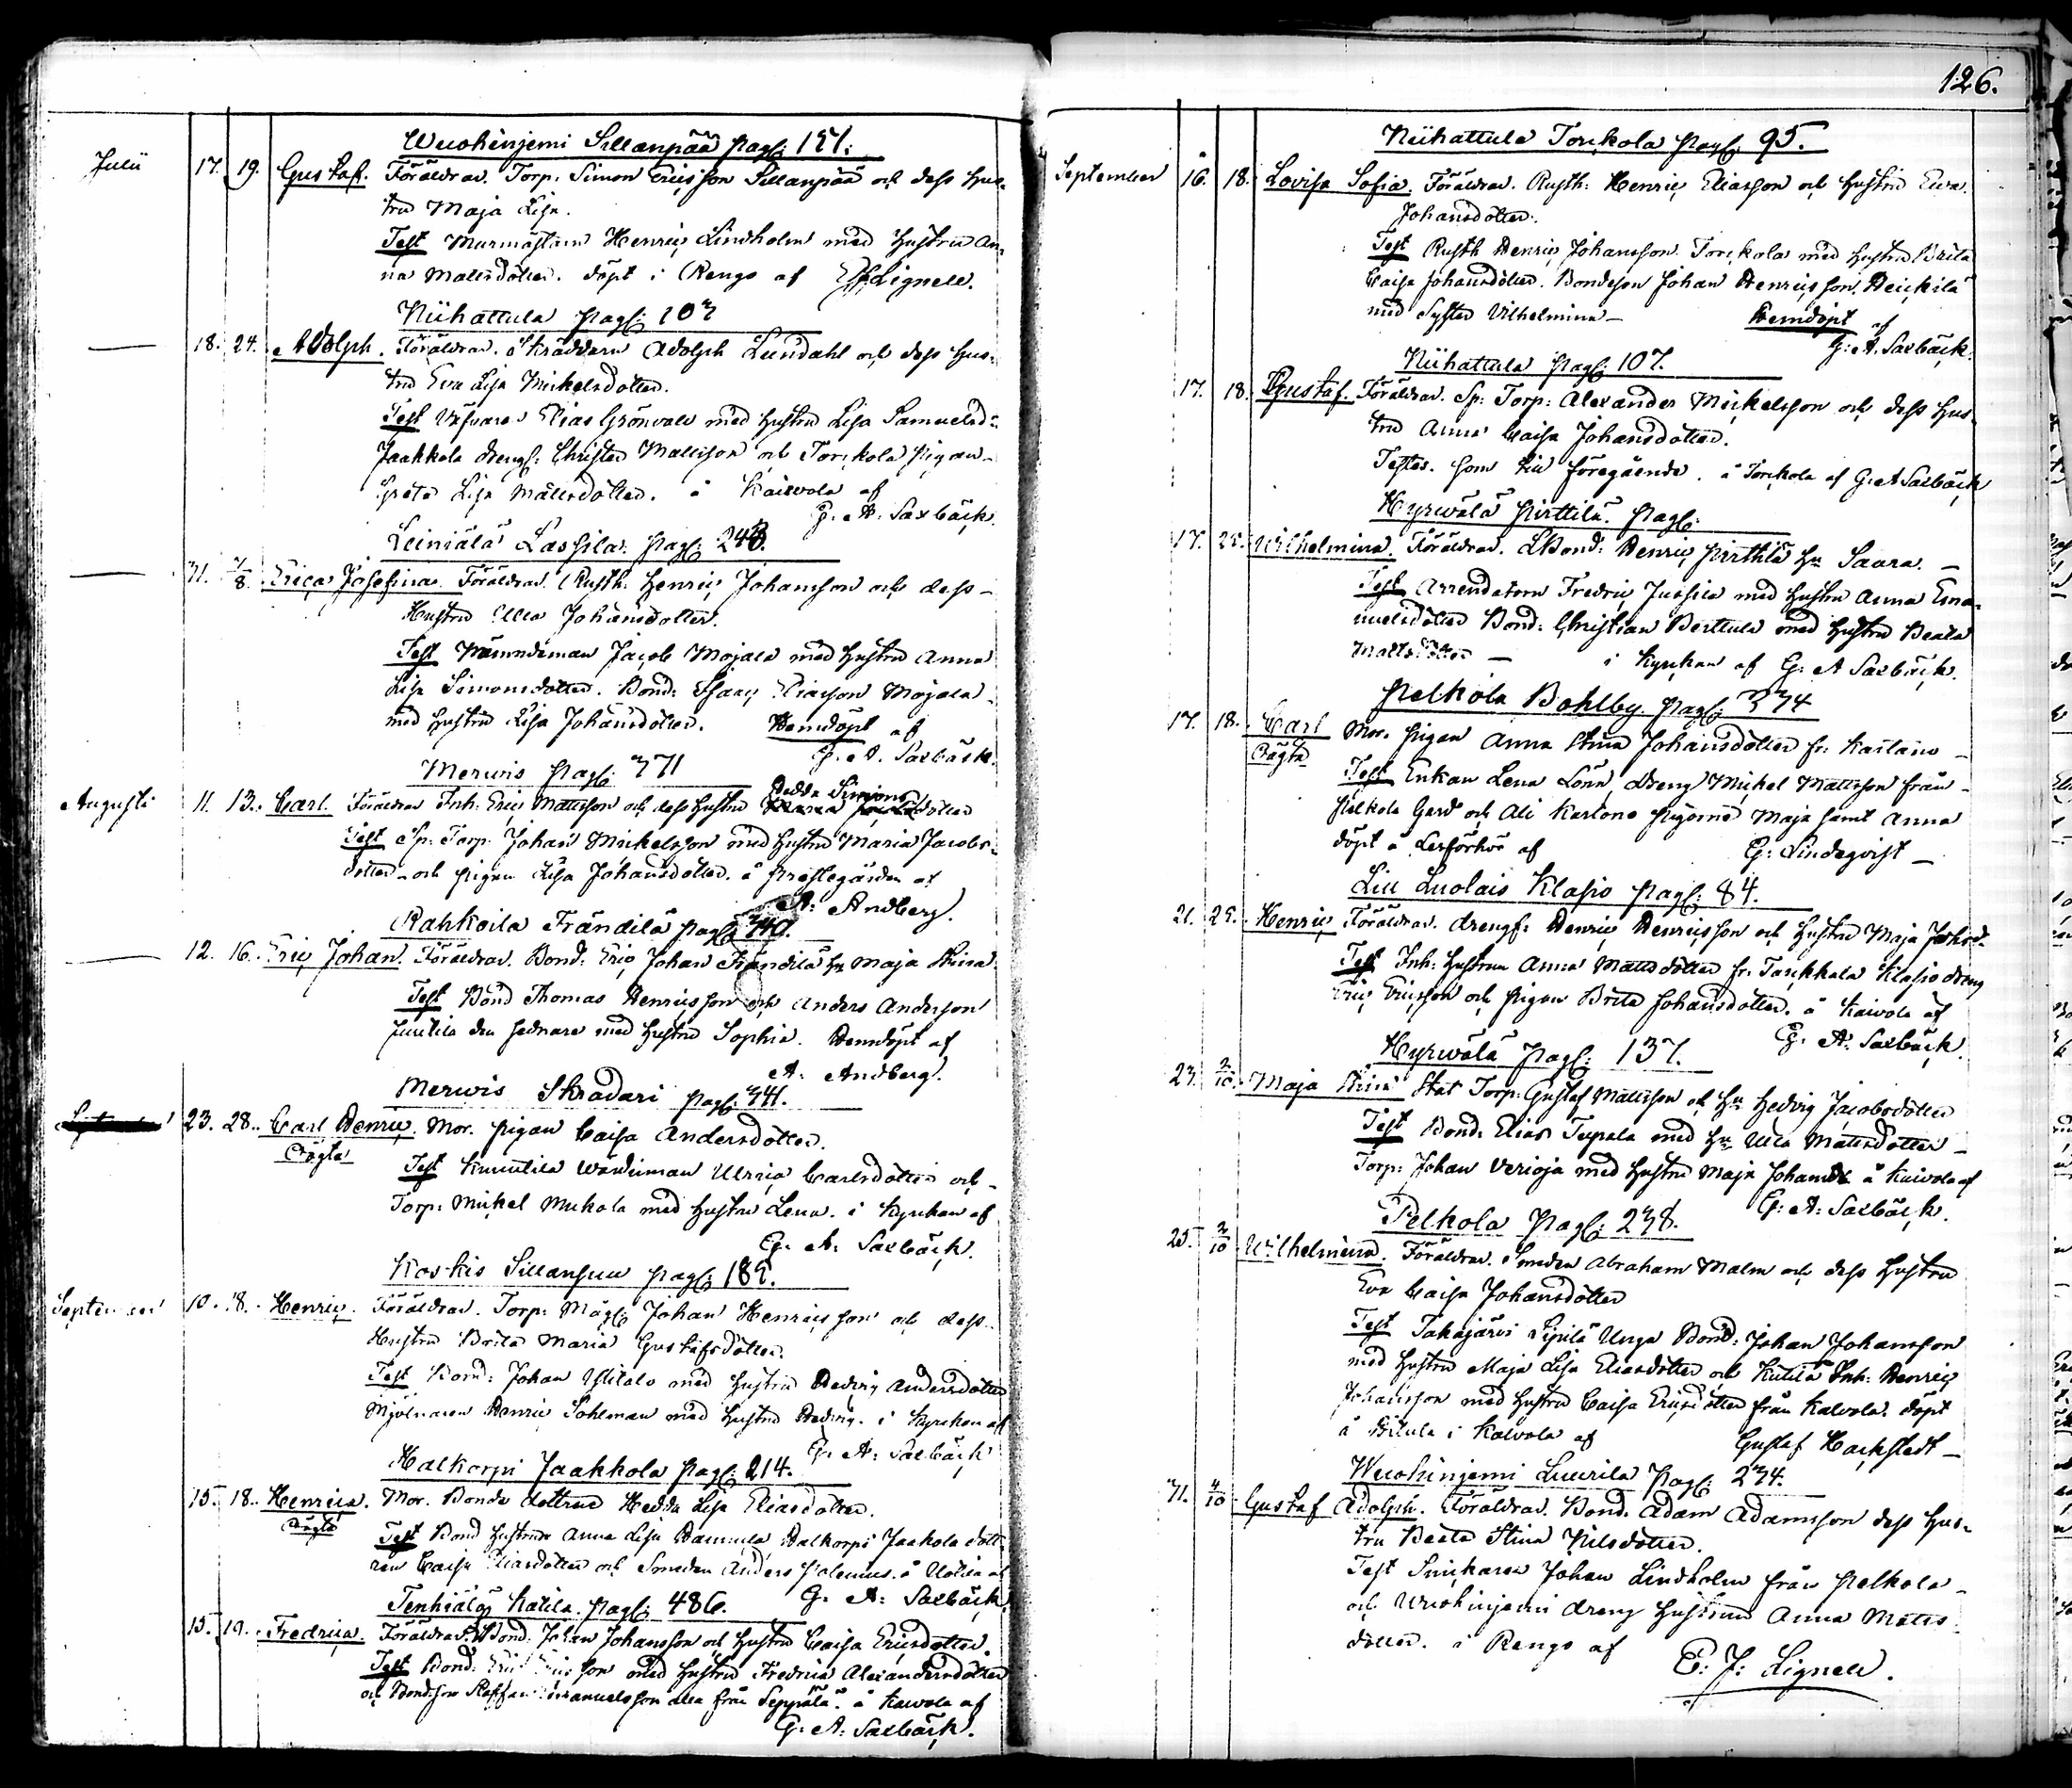 126.
Wuohinjemi Sillanpää pag:
Julii 17. 19. Gustaf. Föräldrar. Torp: Simon Ericsson Sillanpää och dess hus-
tru Maja Lisa.
Test Murmästarn Henric Lindholm med hustru An-
na Mattsdotter. döpt i Rengo af Lignell.
Niihattula pag:
— 18. 24. Adolph. Föräldrar. Skräddarn Adolph Lundahl och dess hus-
tru Eva Lisa Mickelsdotter.
Test Väfvaren Elias Grönvall med hustru Lisa Samuelsd:
Jaakkola drengs: Christer Mattsson och Torckola pigan
Greta Lisa Mattsdotter. å Kaivola af
G. A. Saxbäck.
Leiniälä Lassila. pag:
— 31. 7/8. Erica Josefina. Föräldrar. Rusth: Henric Johansson och dess
Hustru Ulla Johansdotter.
Test Nämndeman Jacob Mojala med hustru Anna
Lisa Simonsdotter. Bond: Isaac Eliasson Mojala
med hustru Lisa Johansdotter. Hemdöpt af
G. A. Saxbäck.
Merwis pag: 371
Augusti 11. 13. Carl. Föräldrar Inh: Eric Mattsson och dess hustru Hedda Simonsdotter
Test Sp: Torp: Johan Mickelsson med hustru Maria Jacobs-
dotter och pigan Lisa Johansdotter. å Prestegården af
A: Andberg.
Rahkoila Frändilä pag: 340.
— 12. 16. Eric Johan. Föräldrar. Bond: Eric Johan Frändilä hu Maja Stina
Test Bond Thomas Henricsson och Anders Andersson
Juutila den sednare med hustru Sophia. Hemdöpt af
A: Andberg.
Merwis Skradari pag: 341.
23. 28. Carl Henric. Mor. pigan Caisa Andersdotter.
Oägta
Test Knuutila Ulrica Carlsdotter och
Torp: Mickel Mukala med hustru Lena. i Kyrkan af
G. A. Saxbäck.
Koskis Sillansuu pag: 189.
September 10. 18. Henric. Föräldrar. Torp: Johan Henricsson och dess
Hustru Brita Maria Gustafsdotter.
Test Bond: Johan Ylitalo med hustru Hedvig Andersdotter
Mjölnaren Henric Sohlman med hustru Hedvig. i Kyrkan af
G. A. Saxbäck
Halkorpi Jaakkola pag: 214.
15. 18. Henrica. Mor. Bonde dottren Hedda Lisa Eliasdotter.
Oägta
Test Bond hustrun Anna Lisa Halkorpi Jaakola dott-
ren Caisa Eliasdotter och Smeden Anders å af
G. A: Saxbäck
Tenhiälä Katila. pag: 486.
15. 19. Fredrica. Föräldrar. Bond: Johan Johansson och hustru Caisa Ericsdotter.
Test Bond: Eric Ericsson med hustru Fredrica Alexandersdotter
och Bondeson Staffan Emanuelsson alla från Seppälä. å Kaivola af
G. A: Saxbäck.
Niihattula Torckola pag: 95.
September 16. 18. Lovisa Sofia. Föräldrar. Rusth: Henric Eliasson och hustru Eva
Johansdotter.
Test Rusth Henric Johansson Torckola med hustru Brita
Caisa Johansdotter. Bondeson Johan Henricsson Heickilä
med Syster Vilhelmina — Hemdöpt af
G: A. Saxbäck.
Niihattula pag: 107.
17. 18. Gustaf. Föräldrar. Sp: Torp: Alexander Mickelsson och dess hus-
tru Anna Caisa Johansdotter.
Testes. som till föregående. å Torckola af G: A Saxbäck
Hyrwälä Pirttilä. pag:
17. 25. Wilhelmina. Föräldrar. Bond: Henric Pirttilä hu Saara. —
Test Arrendatorn Fredric Jussila med hustru Anna Ema-
nuelsdotter Bond: Christian Berttula med hustru Beata
Mattsdotter — i Kyrkan af G: A Saxbäck.
Pelkola Bohlby pag: 334
17. 18. Carl Mor. pigan Anna Stina Johansdotter fr: Karlano —
Oägta
Test Enkan Lena Lönn, dreng Mickel Mattsson från
Pelkola Gerd och Ali Karlano pigorne Maja samt Anna
döpt å Läsförhör af G: Lindeqvist —
Liu Luolais Klasio pag: 84.
21. 25. Henric Föräldrar. drengs: Henric Henricsson och hustru Maja Johsd.
Test Inh: hustrun Anna Mattsdotter fr: Torckkala Klasio dreng
Eric Ericsson och pigan Brita Johansdotter. å Kaivola af
G: A: Saxbäck.
Hyrwälä pag: 137.
23. 2/10. Maja Stina Stat Torp: Gustaf Mattsson och hu Hedvig Jacobsdotter
Test Bond: Elias Tepala med hu Ulla Mattsdotter —
Torp: Johan Verioja med hustru Maja Johansd: å Kaivola af
G: A: Saxbäck.
Pelkola pag: 238.
25. 2/10 Wilhelmina. Föräldrar. Smeden Abraham Malm och dess hustru
Eva Caisa Johansdotter
Test Takajärvi Sipilä Unga Bond: Johan Johansson
med hustru Maja Lisa Eliasdotter och Kutila Inh: Henric
Johansson med hustru Caisa Ericsdotter från Kalvola. döpt
å i Kalvola af Gustaf Hackstedt —
Wuohinjemi Luurila pag: 234.
4/10 Gustaf Adolph. Föräldrar. Bond: Adam Adamsson dess hus-
tru Beata Stina Nilsdotter.
Test Snickaren Johan Lindholm från Pelkola
och Wuohinjemi dreng hustrun Anna Matts-
dotter. i Rengo af
E: J: Lignell.